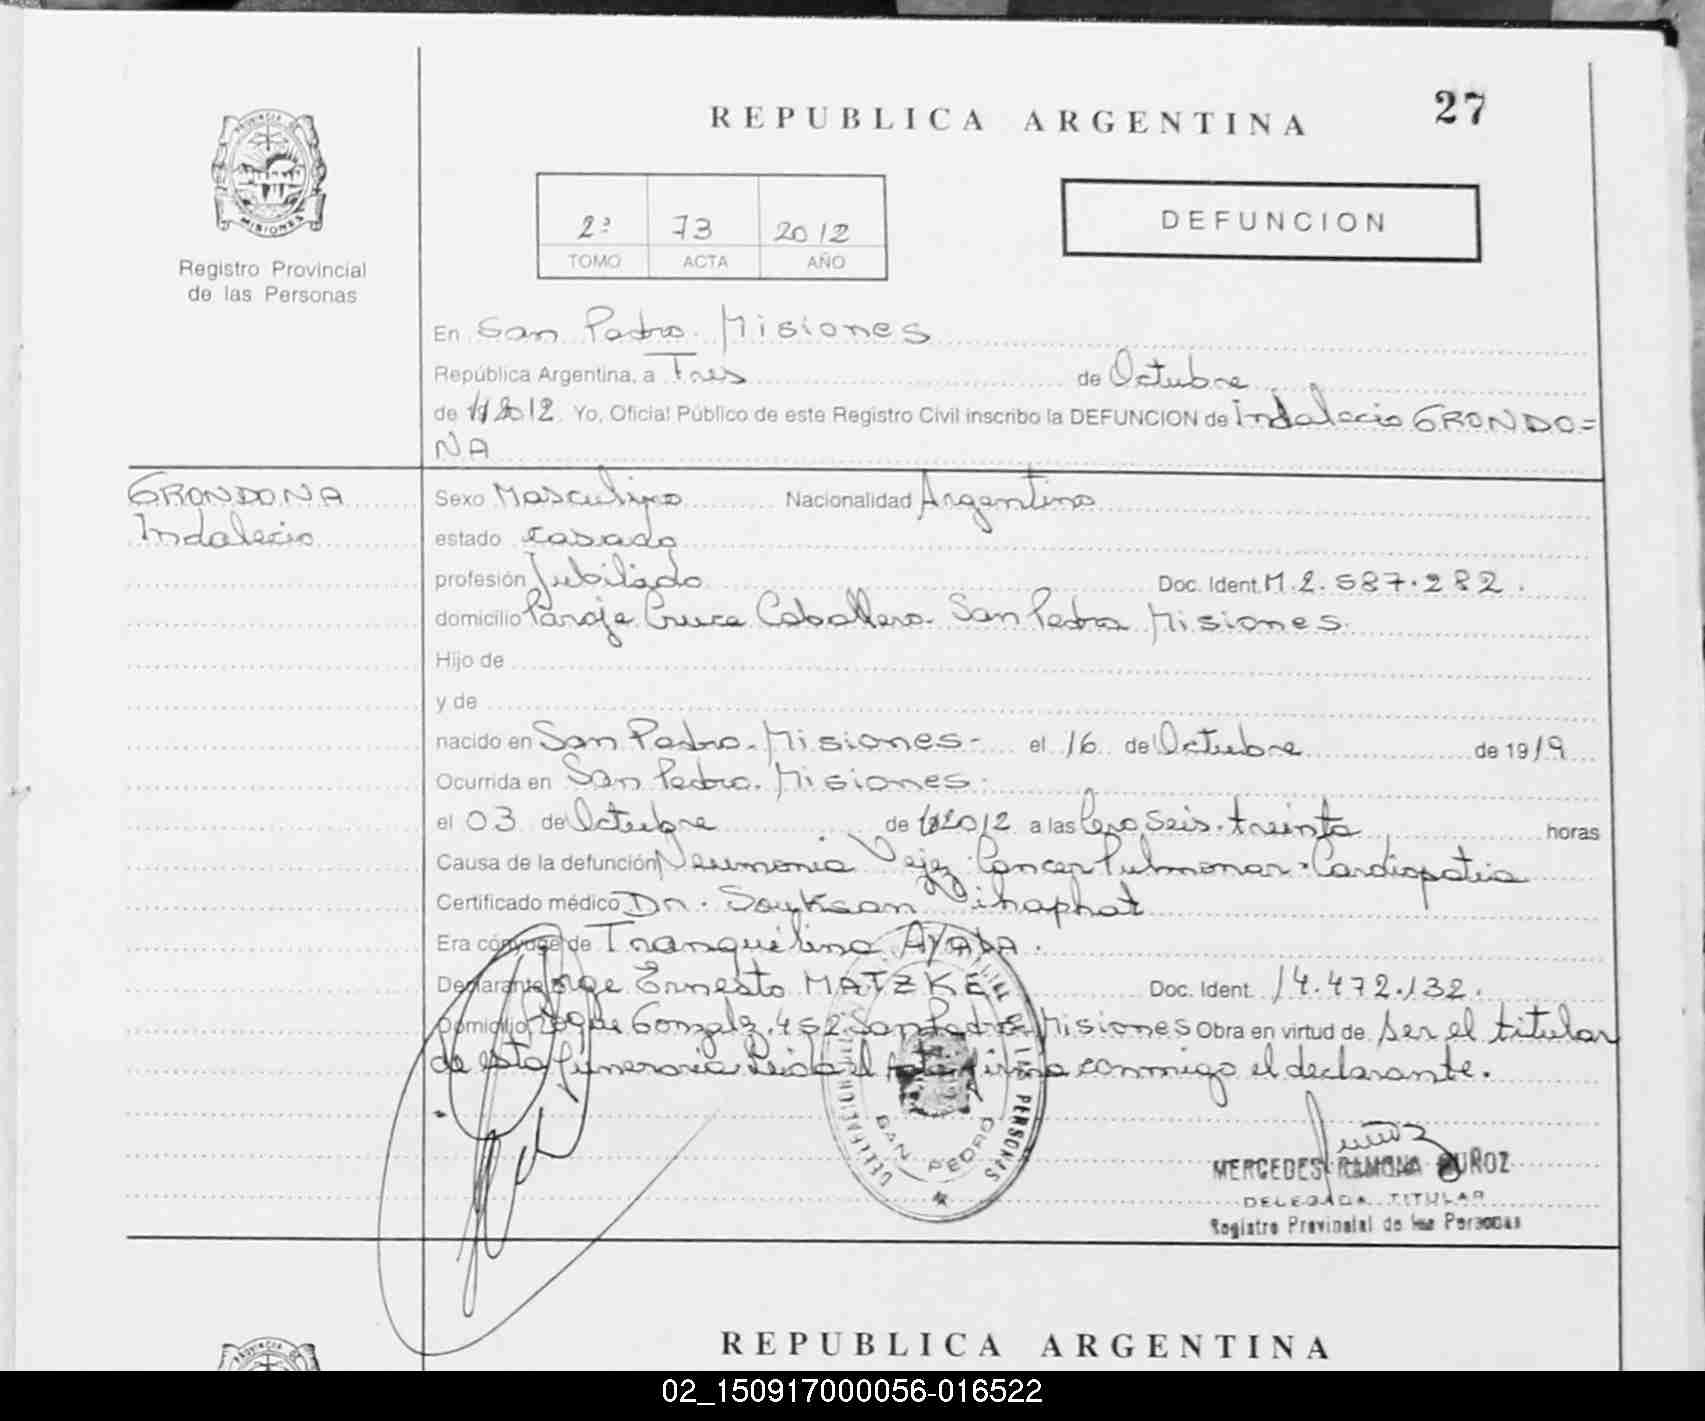 REPUBLICA ARGENTINA
27
PROVINCIA DE
MISIONES
Registro Provincial
de las Personas
2ª 73 2012
TOMO ACTA AÑO
DEFUNCION
En San Pedro. Misiones
República Argentina, a Tres de Octubre
de 2012. Yo, Oficial Público de este Registro Civil inscribo la DEFUNCION de Indalecio GRONDO=
NA
GRONDONA
Indalecio
Sexo Masculino Nacionalidad Argentino
estado casado
profesión Jubilado Doc. Ident. M. 2.587.282.
domicilio Paraje Cruce Caballero. San Pedro Misiones.
Hijo de
y de
nacido en San Pedro. Misiones- el 16 de Octubre de 1919
Ocurrida en San Pedro. Misiones.
el 03 de Octubre de 2012 a las Cero Seis. treinta horas
Causa de la defunción Neumonia Vejez Cancer Pulmonar. Cardiopatia
Certificado médico Dr. Souksan Vihaphat
Era cónyuge de Tranquilina AYALA.
Declarante Jorge Ernesto MATZKE Doc. Ident. 14.472.132.
Domicilio Roque Gonzalz. 452 San Pedro Misiones Obra en virtud de ser el titular
de esta funeraria Leida el acta firma conmigo el declarante.
SAN PEDRO
DE LAS PERSONAS
MERCEDES RAMONA MUÑOZ
DELEGADA TITULAR
Registro Provincial de las Personas
REPUBLICA ARGENTINA
02_150917000056-016522